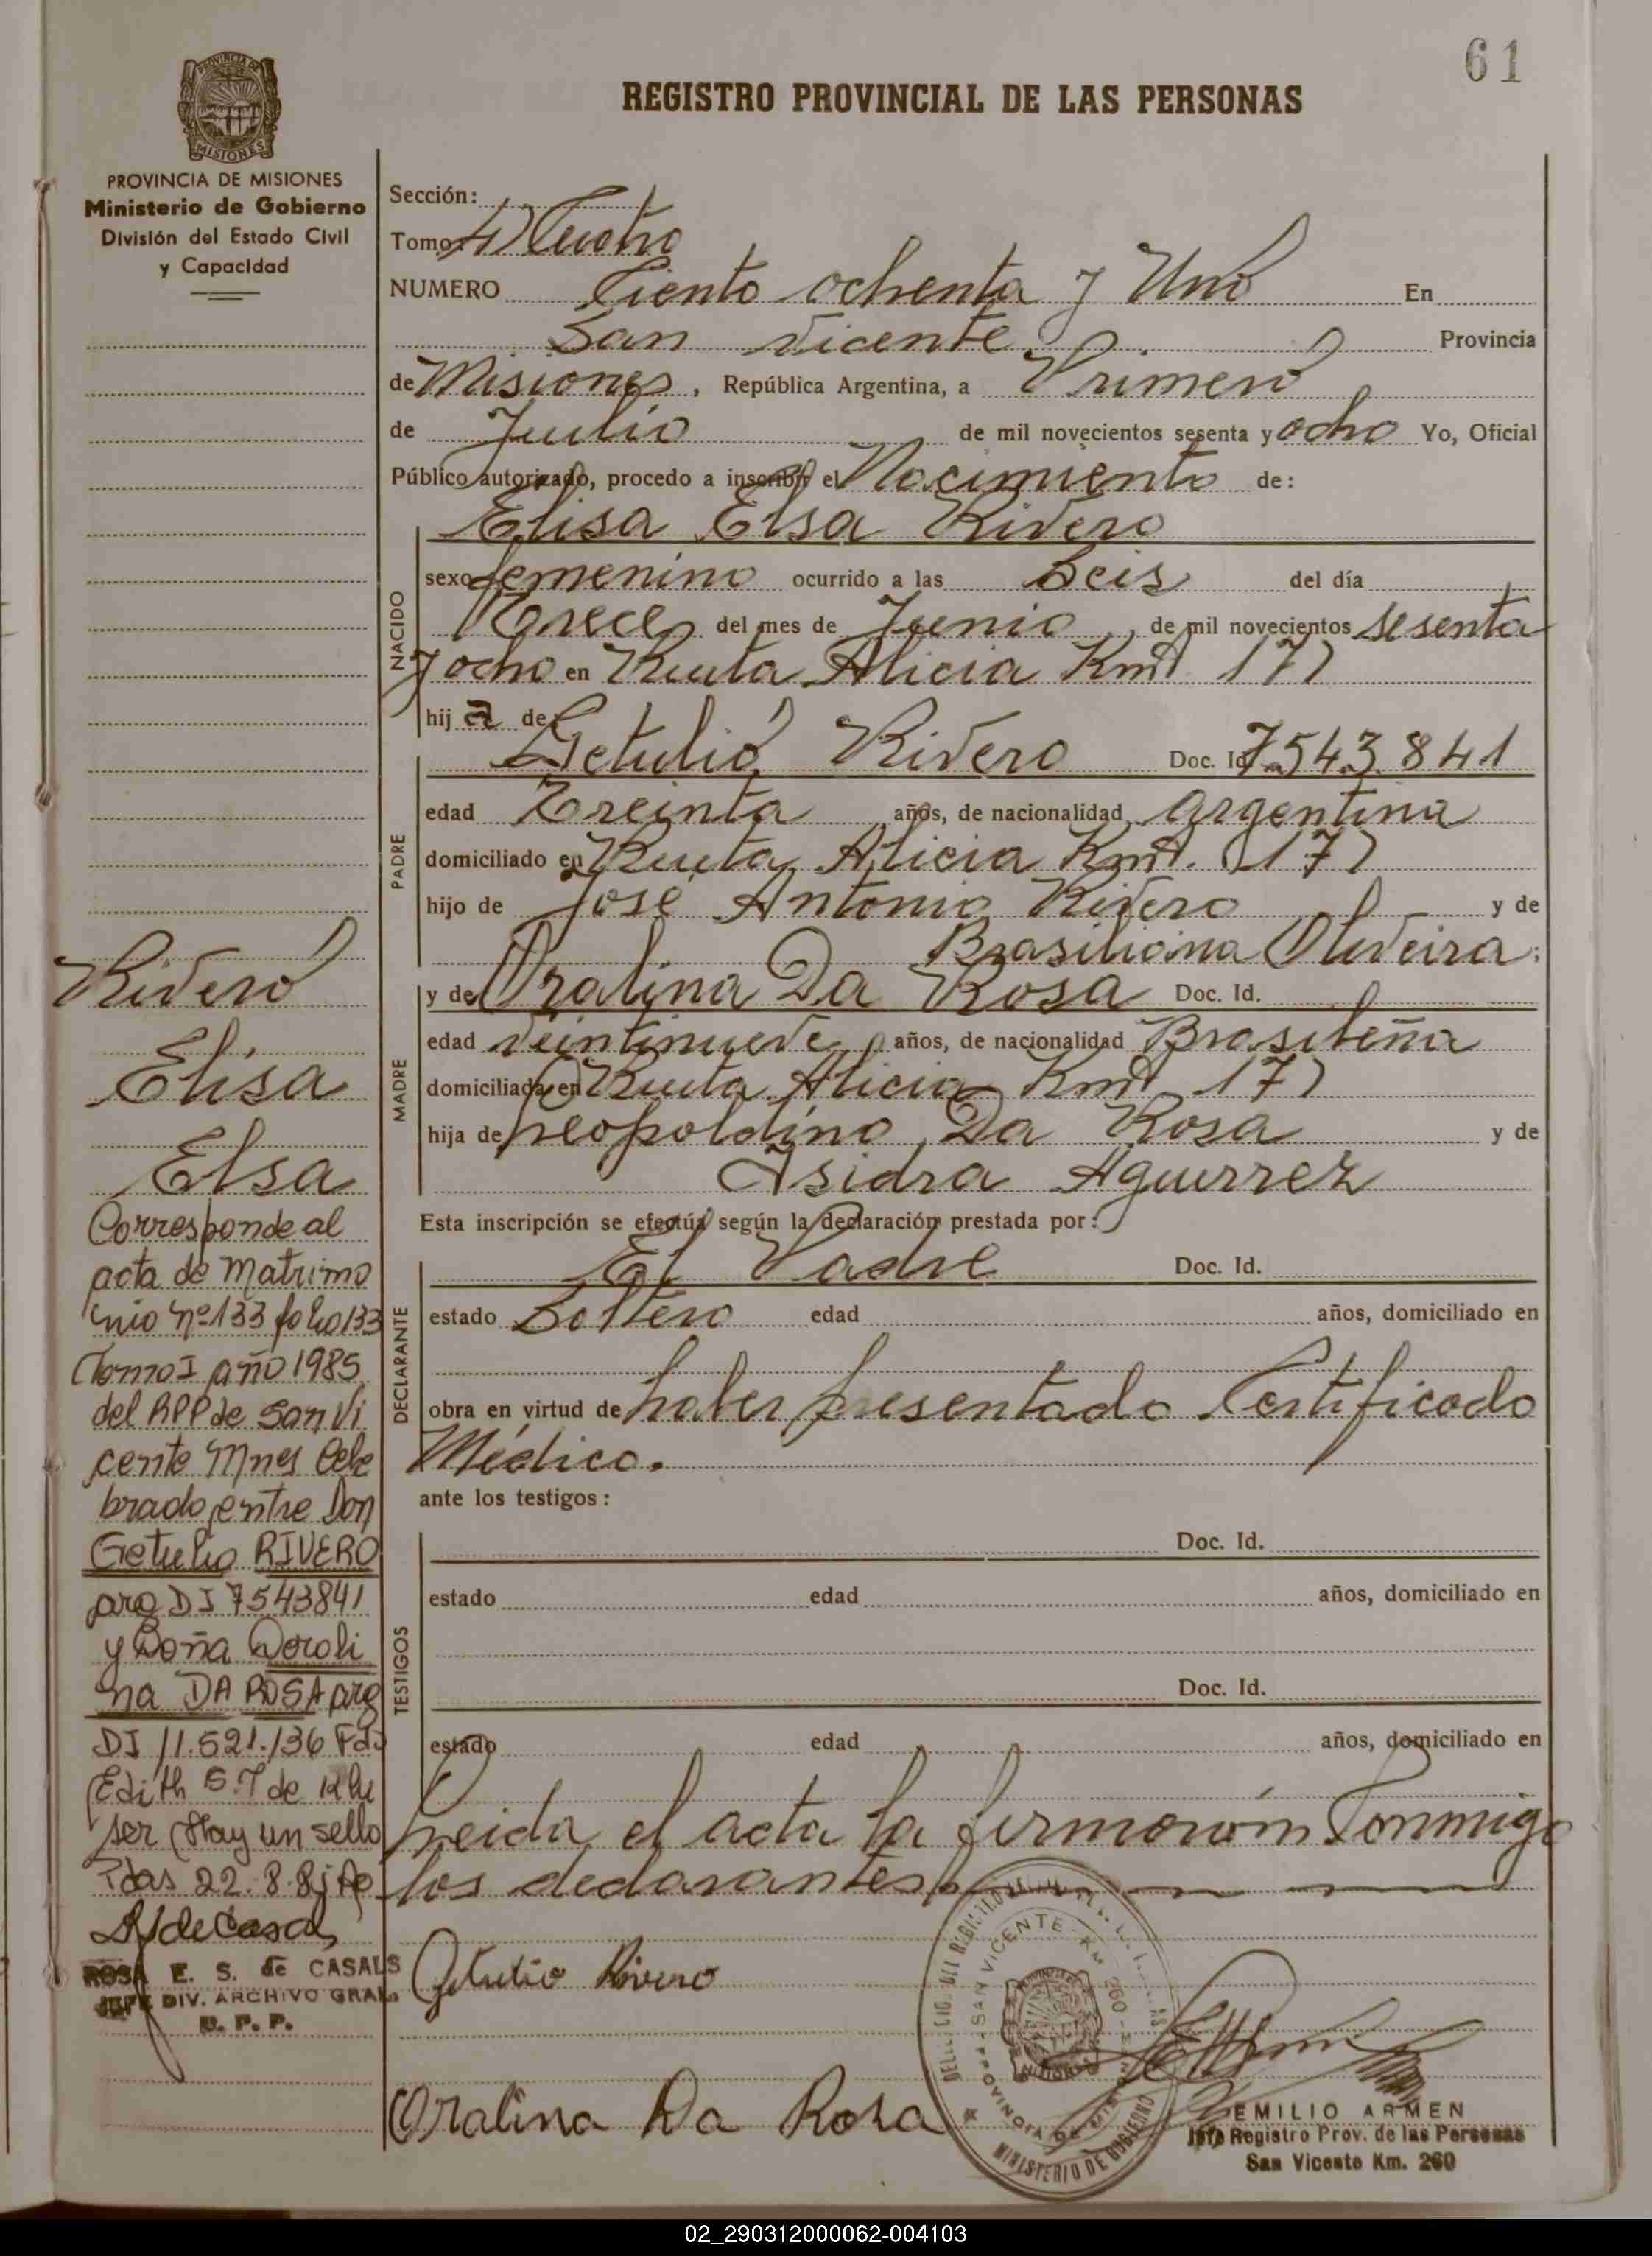 61
REGISTRO PROVINCIAL DE LAS PERSONAS
PROVINCIA DE MISIONES
PROVINCIA DE MISIONES
Ministerio de Gobierno
División del Estado Civil
y Capacidad
Sección:
Tomo: 4) Cuatro
NUMERO Ciento ochenta y Uno En
San Vicente Provincia
de Misiones, República Argentina, a Primero
de Julio de mil novecientos sesenta y ocho Yo, Oficial
Público autorizado, procedo a inscribir el Nacimiento de:
Elisa Elsa Rivero
NACIDO
sexo femenino ocurrido a las Seis del día
Trece del mes de Junio, de mil novecientos sesenta
y ocho en Ruta Alicia Kmt 177
hija de
Getulio Rivero Doc. Id. 7.543.841
PADRE
edad Treinta años, de nacionalidad argentina
domiciliado en Ruta Alicia Kmt. 177
hijo de José Antonio Rivero y de
Brasiliana Oliveira;
y de Oralina Da Rosa Doc. Id.
MADRE
edad veintinueve años, de nacionalidad Brasileña
domiciliada en Ruta Alicia Kmt 177
hija de Leopoldino Da Rosa y de
Isidra Aguerrez
Esta inscripción se efectúa según la declaración prestada por:
El Padre Doc. Id.
DECLARANTE
estado Soltero edad años, domiciliado en
obra en virtud de haber presentado Certificado
Médico.
ante los testigos:
TESTIGOS
Doc. Id.
estado edad años, domiciliado en
Doc. Id.
estado edad años, domiciliado en
Leida el acta la firmaron Conmigo
los declarantes
Getulio Rivero
Oralina Da Rosa
SAN VICENTE - Km. 260
PROVINCIA DE MISIONES
MINISTERIO DE GOBIERNO
EMILIO ARMEN
Jefe Registro Prov. de las Personas
San Vicente Km. 260
Rivero
Elisa
Elsa
Corresponde al
acta de Matrimo
nio nº 133 folio 133
Tomo I año 1985
del RPP de San Vi
cente Mnes Cele
brado entre Don
Getulio RIVERO
arg DI 7543841
y Doña Dorali
na DA ROSA arg
DI 11.521.136 Fdo
Edith S. T de Klu
ser (Hay un sello
Pdas 22.8.85
ROSA E. S. de CASALS
JEFE DIV. ARCHIVO GRAL.
R. P. P.
02_290312000062-004103